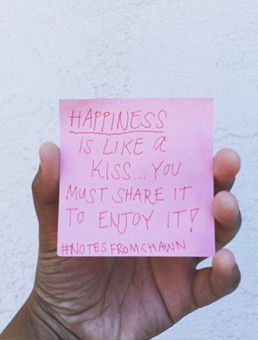 HAPPINESS
IS LIKE A
KISS... YOU
MUST SHARE IT
TO ENJOY IT!
#NOTESFROMCHAWN